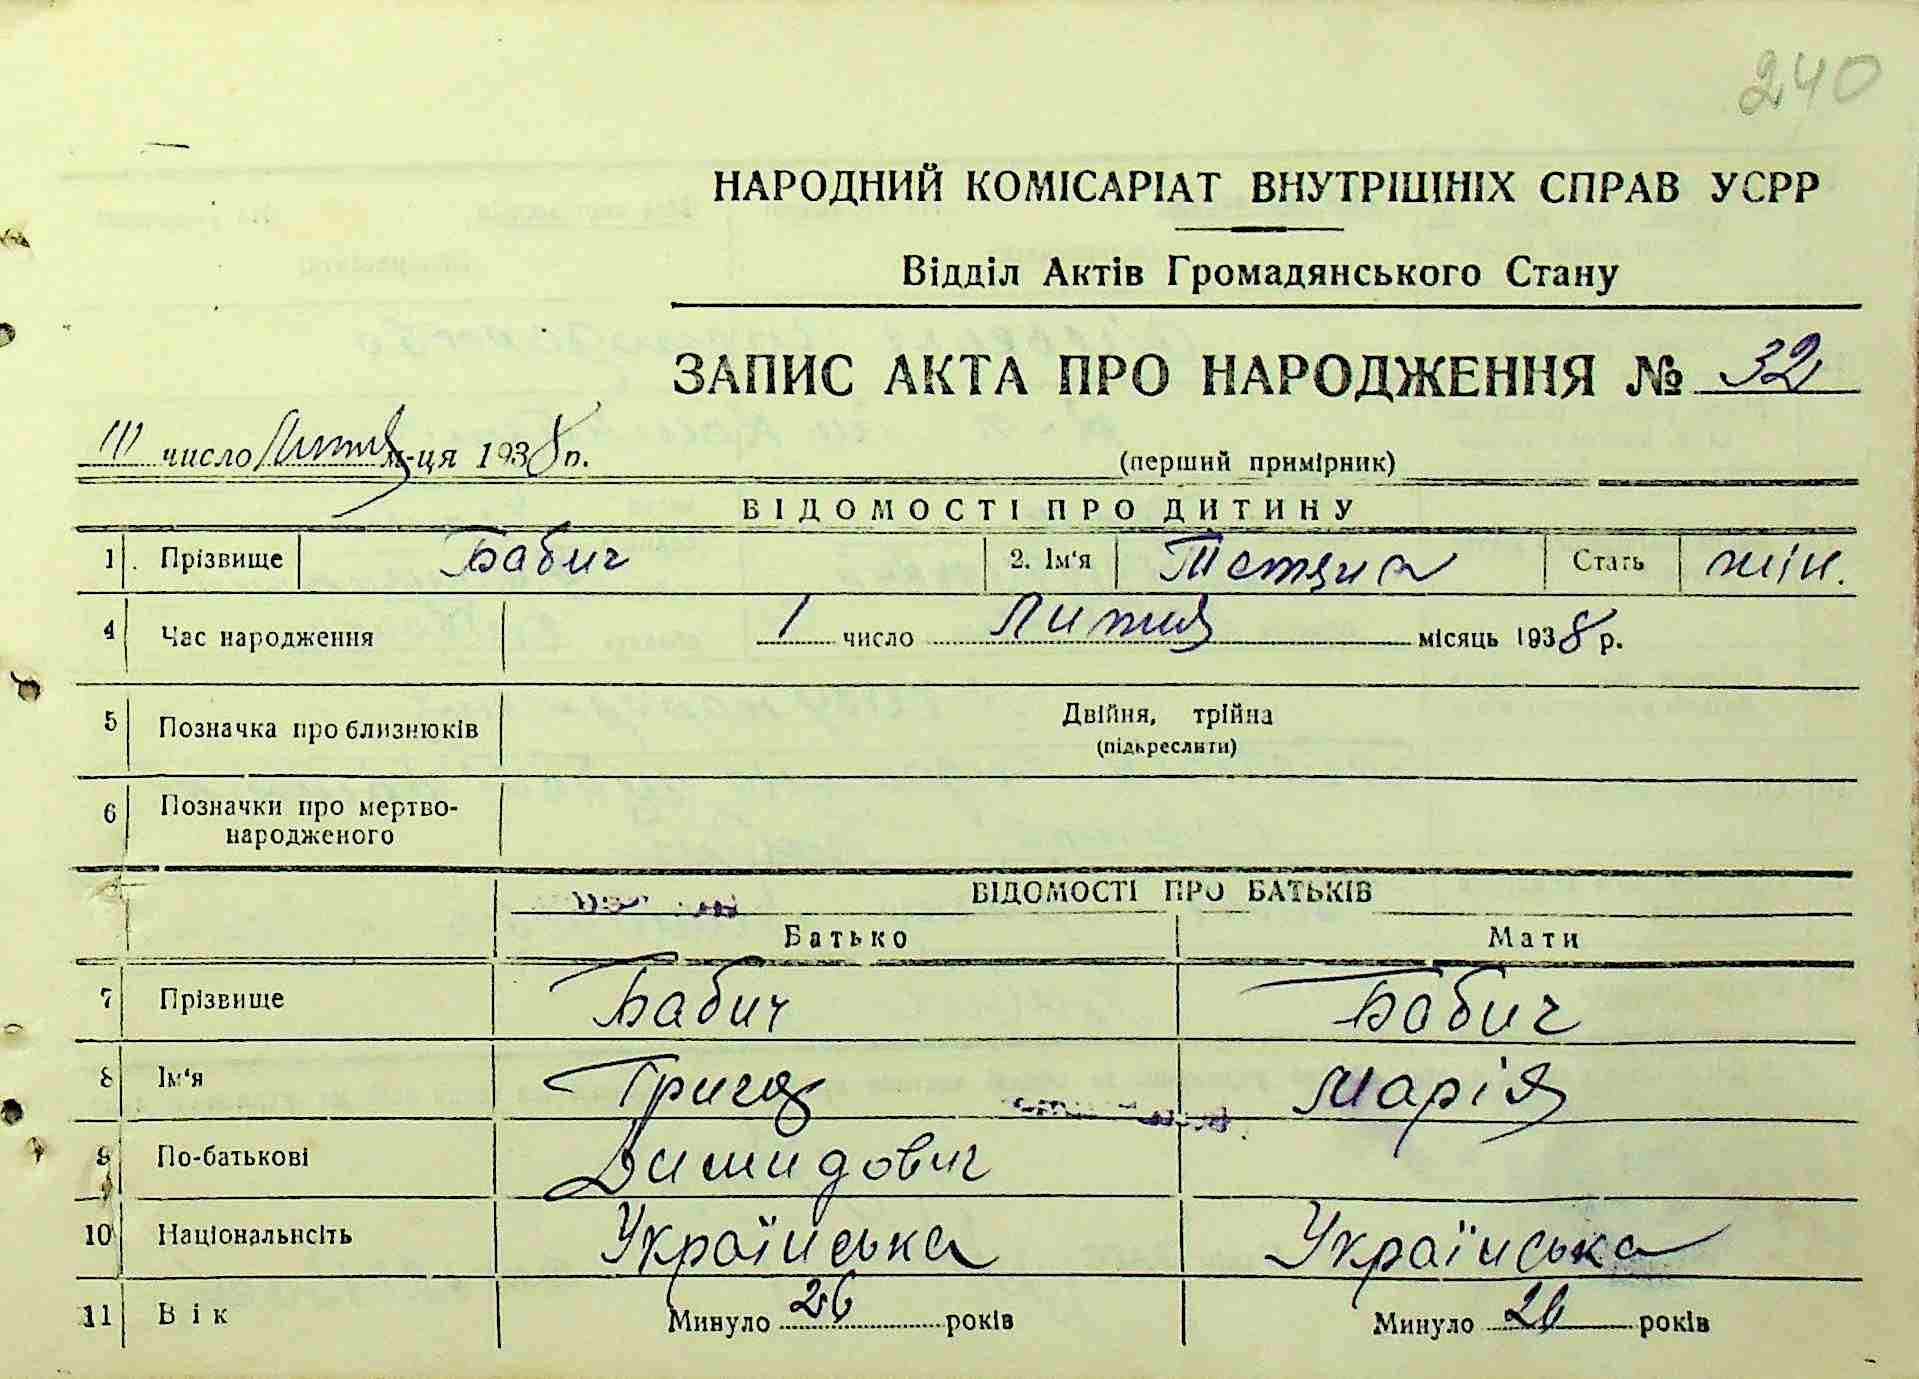 240
НАРОДНИЙ КОМІСАРІАТ ВНУТРІШНІХ СПРАВ УСРР
Відділ Актів Громадянського Стану
ЗАПИС АКТА ПРО НАРОДЖЕННЯ № 32
число м-ця 1938 р. (перший примірник)
ВІДОМОСТІ ПРО ДИТИНУ
1. Прізвище Бабич 2. Ім'я Тетяна Стать жін.
4 Час народження 1 число місяць 1938 р.
5 Позначка про близнюків Двійня, трійня
(підкреслити)
6 Позначки про мертво-
народженого
ВІДОМОСТІ ПРО БАТЬКІВ
Батько Мати
7 Прізвище Бабич Бабич
8 Ім'я Марія
9 По-батькові Димидович
10 Національнсіть Українська Українська
11 Вік Минуло 26 років Минуло 26 років